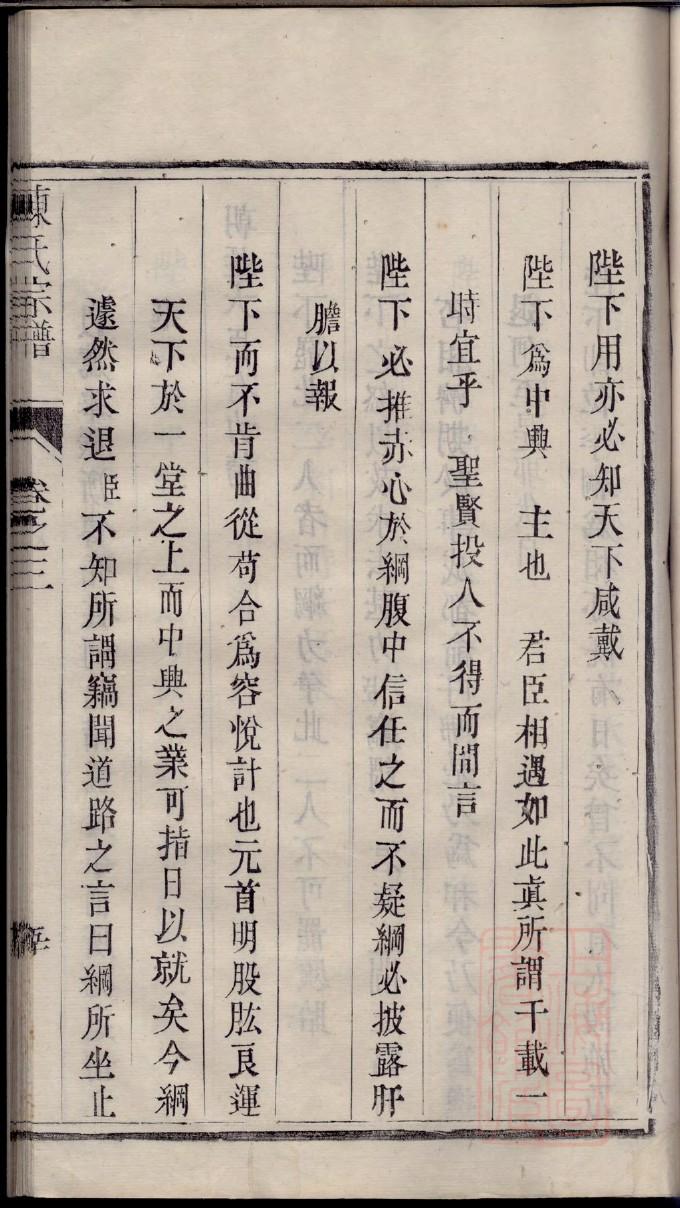 陛下用亦必知天下咸戴
陛下爲中興　主也　君臣相遇如此真所謂千載一
時宜乎　聖賢投人不得而間言
陛下必推赤心於綱腹中信任之而不疑綱必披露肝
膽以報
陛下而不肯曲從苟合爲容悅計也元首明股肱良運
天下於一堂之上而中興之業可指日以就矣今綱
遽然求退臣不知所謂竊聞道路之言曰綱所坐止
陳氏宗譜　卷之三　五